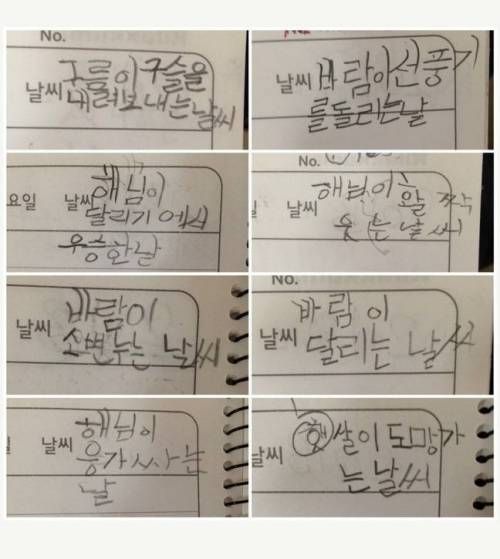 No.
날씨 구름이 구슬을
내려보내는 날씨
날씨 바람이 선풍기
를 돌리는 날
요일 날씨 해님이
달리기에서
우승한 날
No.
날씨 해님이 활짝
웃는 날씨
날씨 바람이
소변누는 날씨
No.
날씨 바람이
달리는 날씨
날씨 해님이
응가싸는
날
날씨 햇살이 도망가
는 날씨